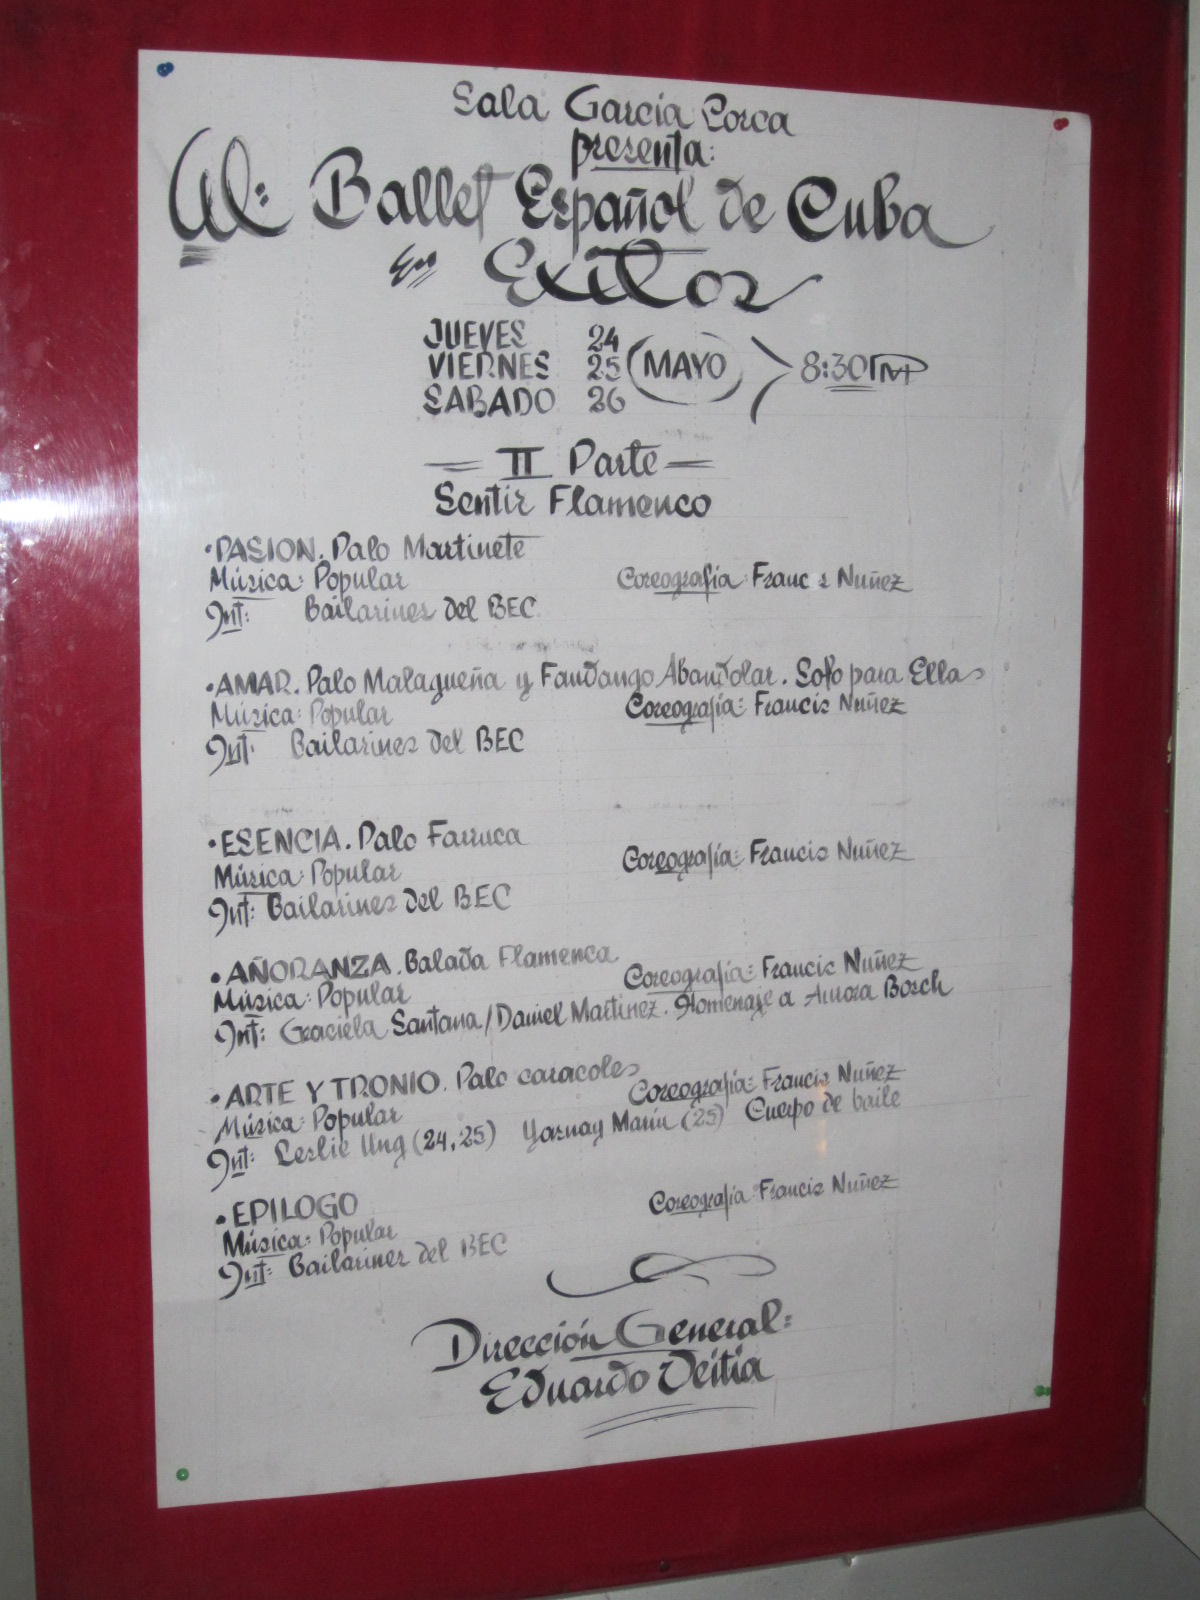 Sala García Lorca
presenta:
Al: Ballet Español de Cuba
En Exitos
JUEVES 24
VIERNES 25 MAYO 8:30 PM
SABADO 26
II Parte
Sentir Flamenco
•PASION. Palo Martinete
Música: Popular Coreografía: Francis Nuñez
Int: Bailarines del BEC
•AMAR. Palo Malagueña y Fandango Abandolar. Solo para Ella
Música: Popular Coreografía: Francis Nuñez
Int: Bailarines del BEC
•ESENCIA. Palo Farruca
Música: Popular Coreografía: Francis Nuñez
Int: Bailarines del BEC
•AÑORANZA. Balada Flamenca
Música: Popular Coreografía: Francis Nuñez
Int: Graciela Santana/Daniel Martinez. Homenaje a Aurora Bosch
•ARTE Y TRONIO. Palo caracoles
Música: Popular Coreografía: Francis Nuñez
Int: Leslie Ung (24, 25) Marín (25) Cuerpo de baile
•EPILOGO
Música: Popular Coreografía: Francis Nuñez
Int: Bailarines del BEC
Dirección General:
Eduardo Veitia